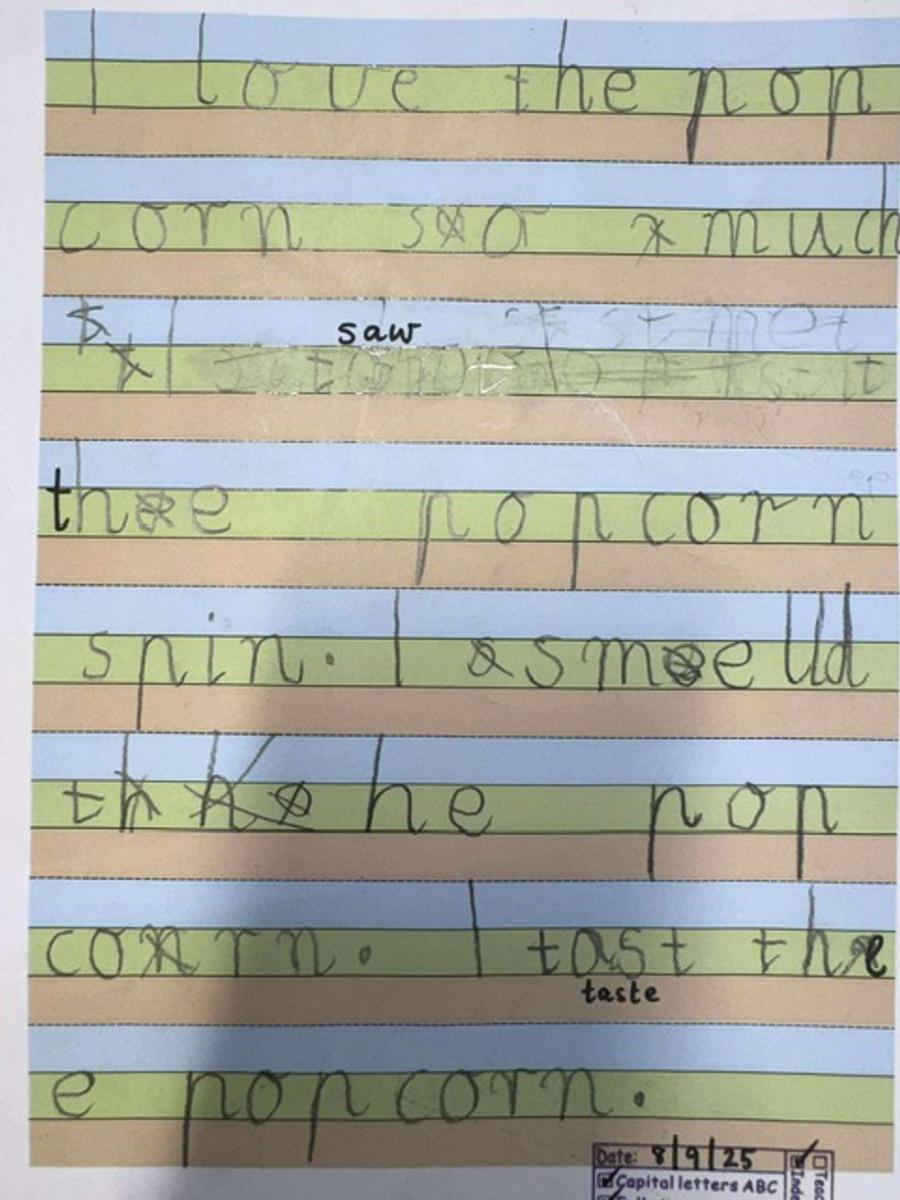 I love the pop
corn so much
I saw
the popcorn
spin. I smelld
the pop
corn. I tast the
taste
e popcorn.
Date: 8/9/25
Capital letters ABC